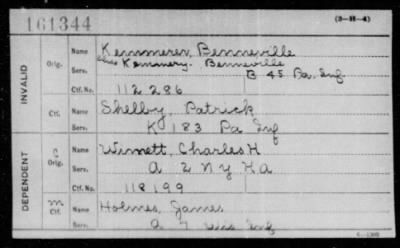 161344 (3-H-4)
INVALID
Orig. Name Kemmerer, Benneville
alias Kemmery. Benneville
Serv. B 45 Pa. Inf
Ctf. No. 112 286
Ctf. Name Shelby, Patrick
Serv. K 183 Pa Inf
DEPENDENT
C Orig. Name Winnett, Charles H
Serv. A 2 N Y H A
Ctf. No. 118,199
M Ctf. Name Holmes, James
Serv. a 7 Wis Inf